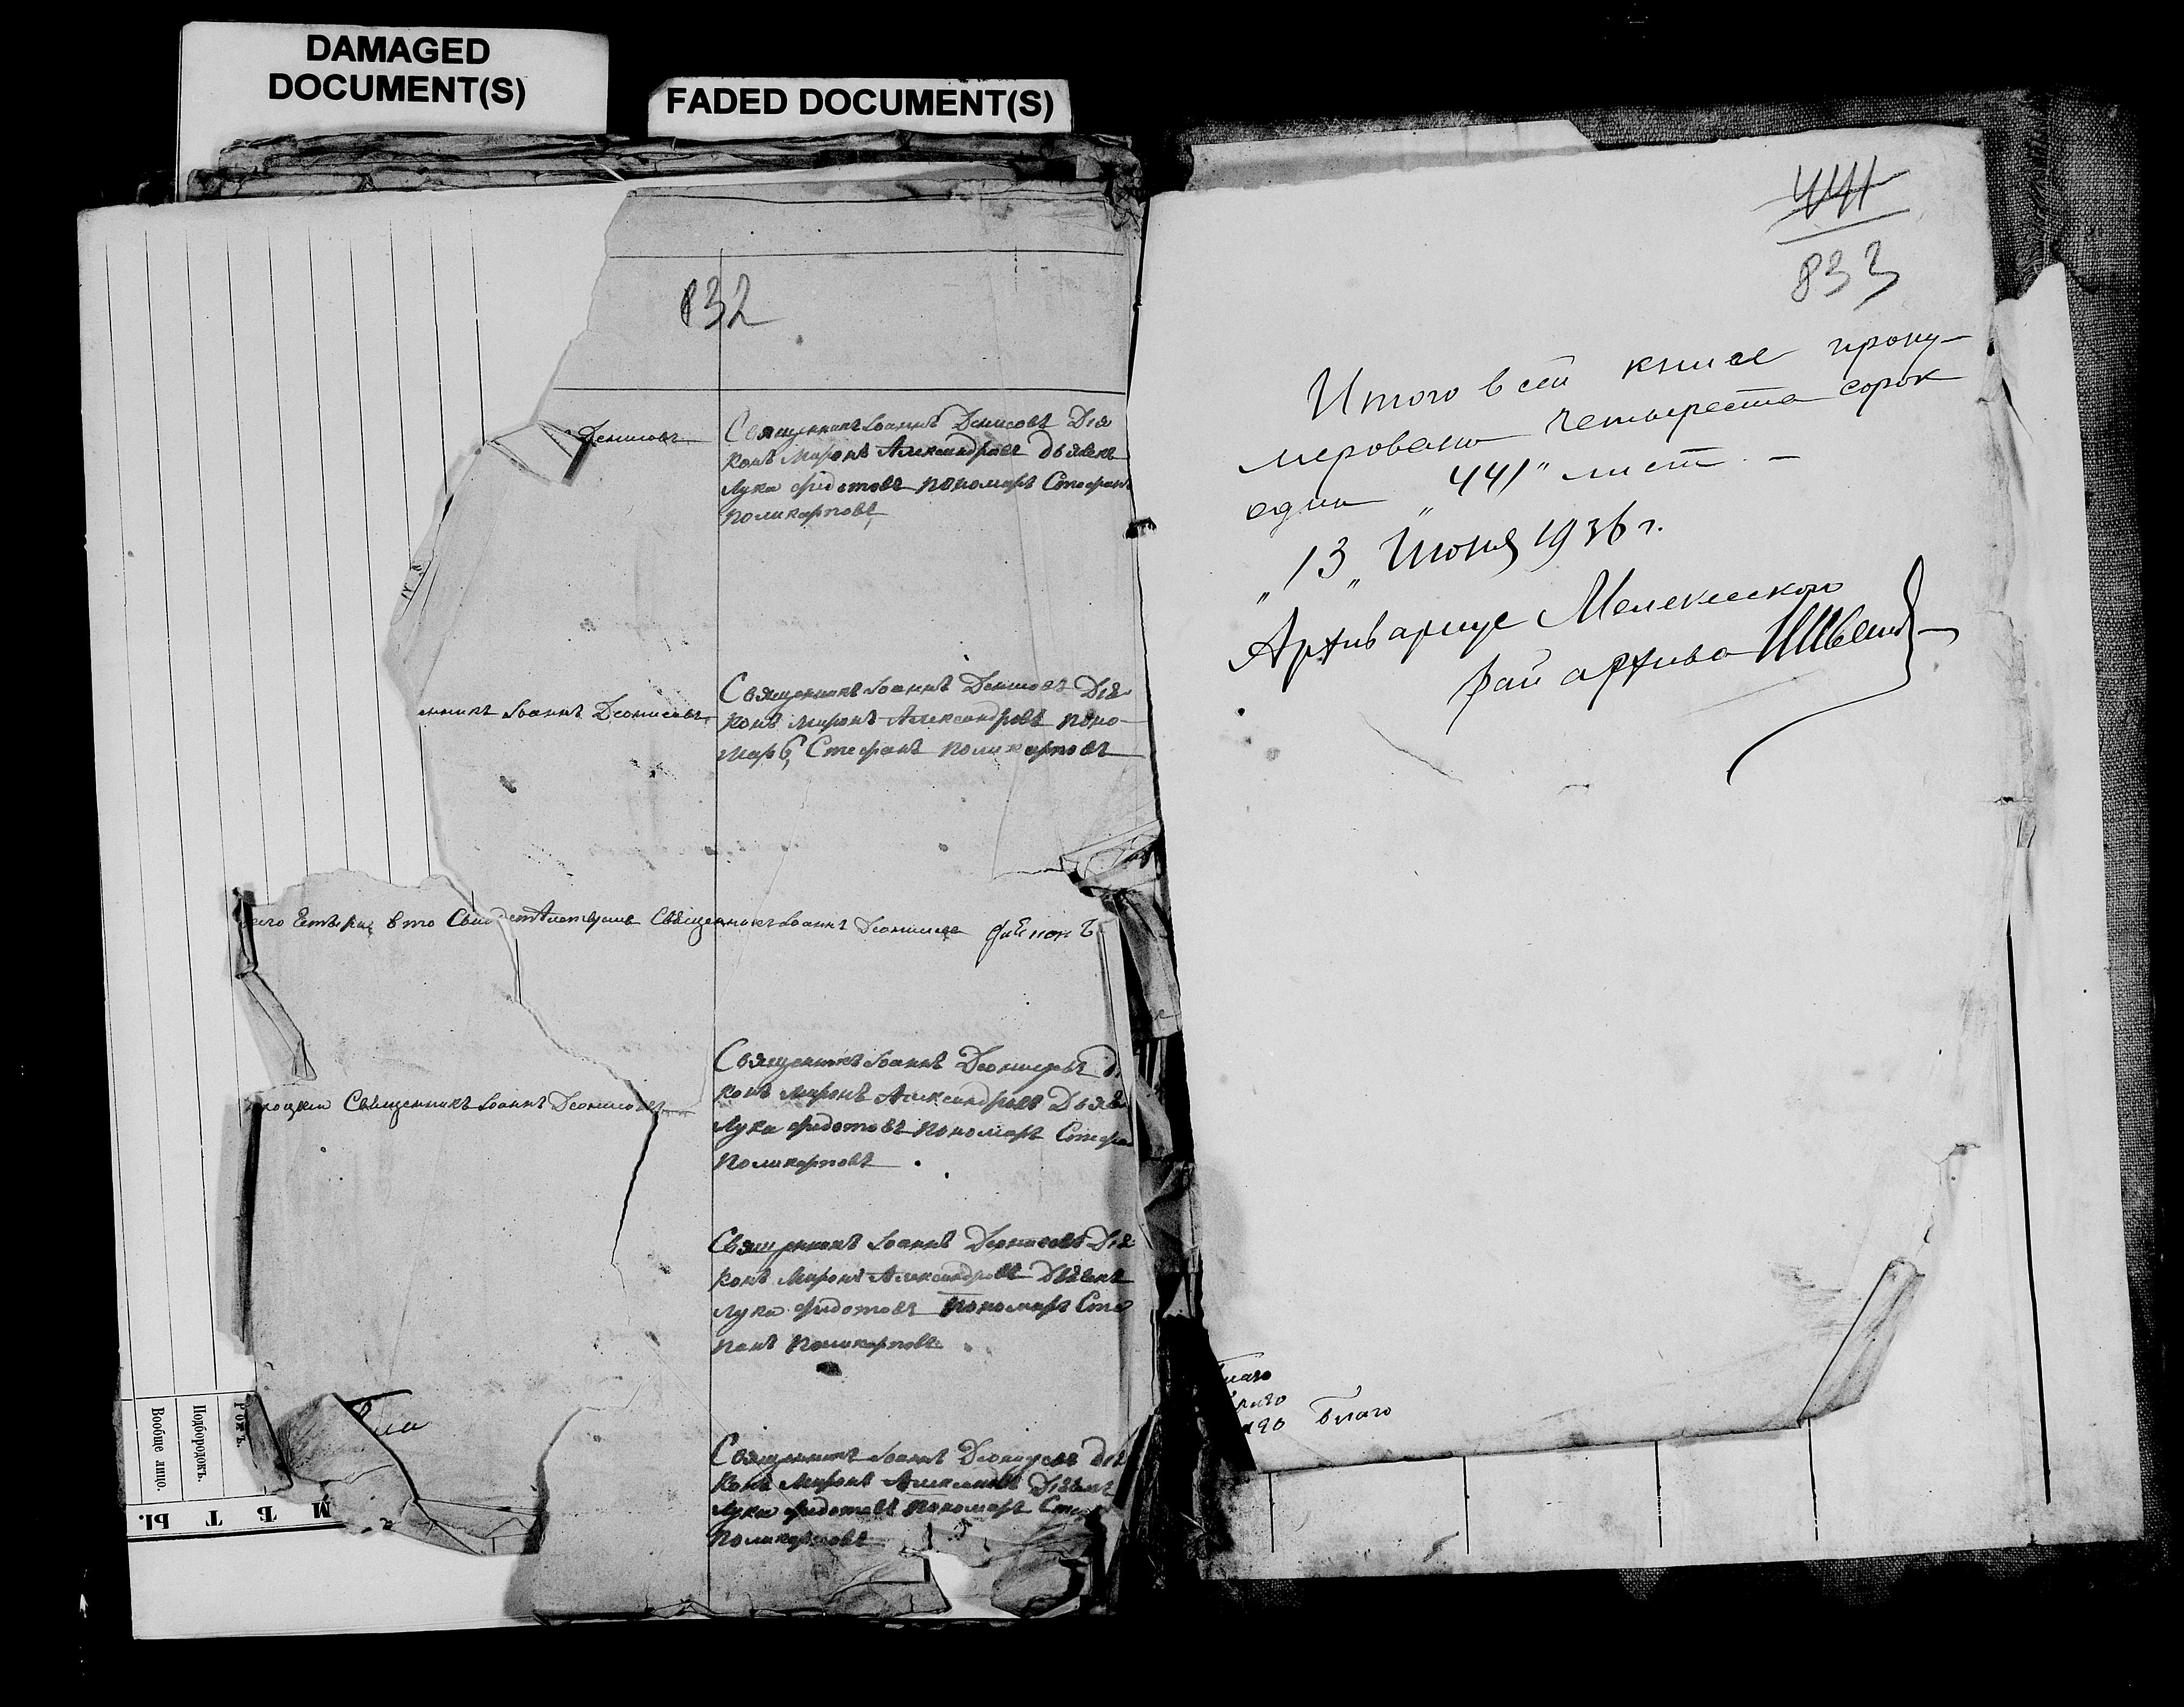 DAMAGED
DOCUMENT(S)
FADED DOCUMENT(S)
832
Денисовъ
Священникъ Іоаннъ Денисовъ Діа
конъ Миронъ Александровъ дьячекъ
Лука Федотовъ пономарь Стефанъ
Поликарповъ
енникъ Іоаннъ Деонисовъ
Священникъ Іоаннъ Денисовъ Діа
конъ Миронъ Александровъ поно-
марь Стефанъ Поликарповъ
Священникъ Іоаннъ Деонисовъ
Священникъ Іоаннъ Деонисовъ
Священникъ Іоаннъ Деонисовъ
конъ Миронъ Александровъ
Лука Федотовъ пономарь Стефа
Поликарповъ
Священникъ Іоаннъ Деонисовъ Діа
конъ Миронъ Александровъ Дьячекъ
Лука Федотовъ пономарь Сте
панъ Поликарповъ
Священникъ Іоаннъ
конъ Миронъ
Лука Федотовъ пономарь
Поликарповъ
Ротъ.
Подбородокъ.
Вообще лицо.
МѢТЫ.
441
833
Итого в сей книге прону-
меровано четыреста сорок
один "441" лист. -
"13" Июня 1936 г.
Архивариус Мелекесского
рай архива
благо